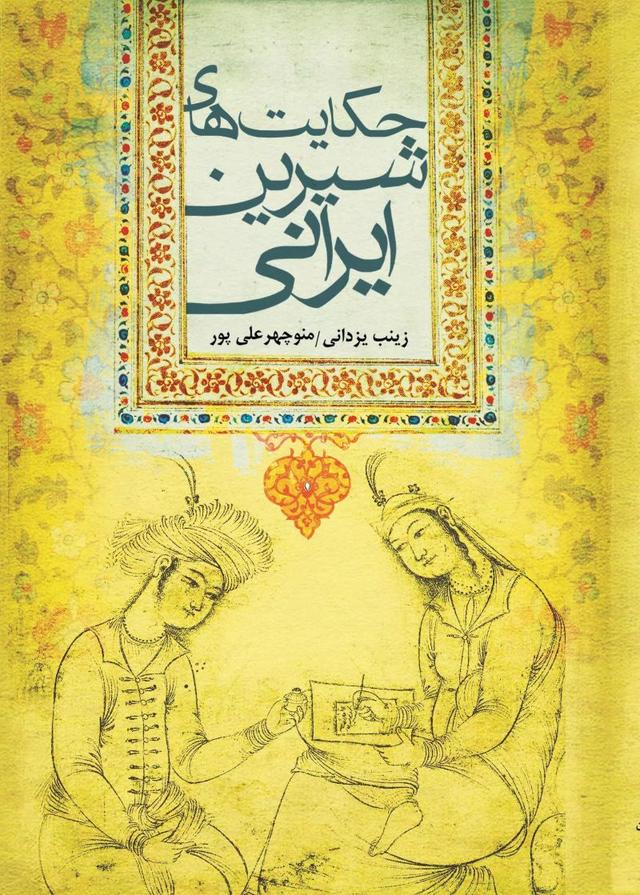 حکایت‌های
شیرین
ایرانی
زینب یزدانی/منوچهر علی پور